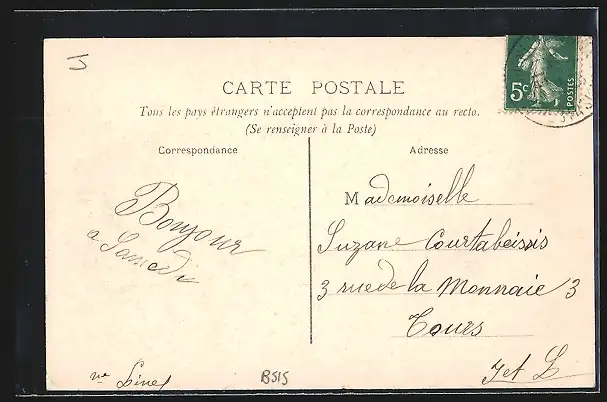 CARTE POSTALE
Tous les pays étrangers n'acceptent pas la correspondance au recto.
(Se renseigner à la Poste)
Correspondance
Adresse
5c
POSTES
Bonjour
a Samedi
Mademoiselle
Suzane Courtabessis
3 rue de la Monnaie 3
Tours
I et L
B515